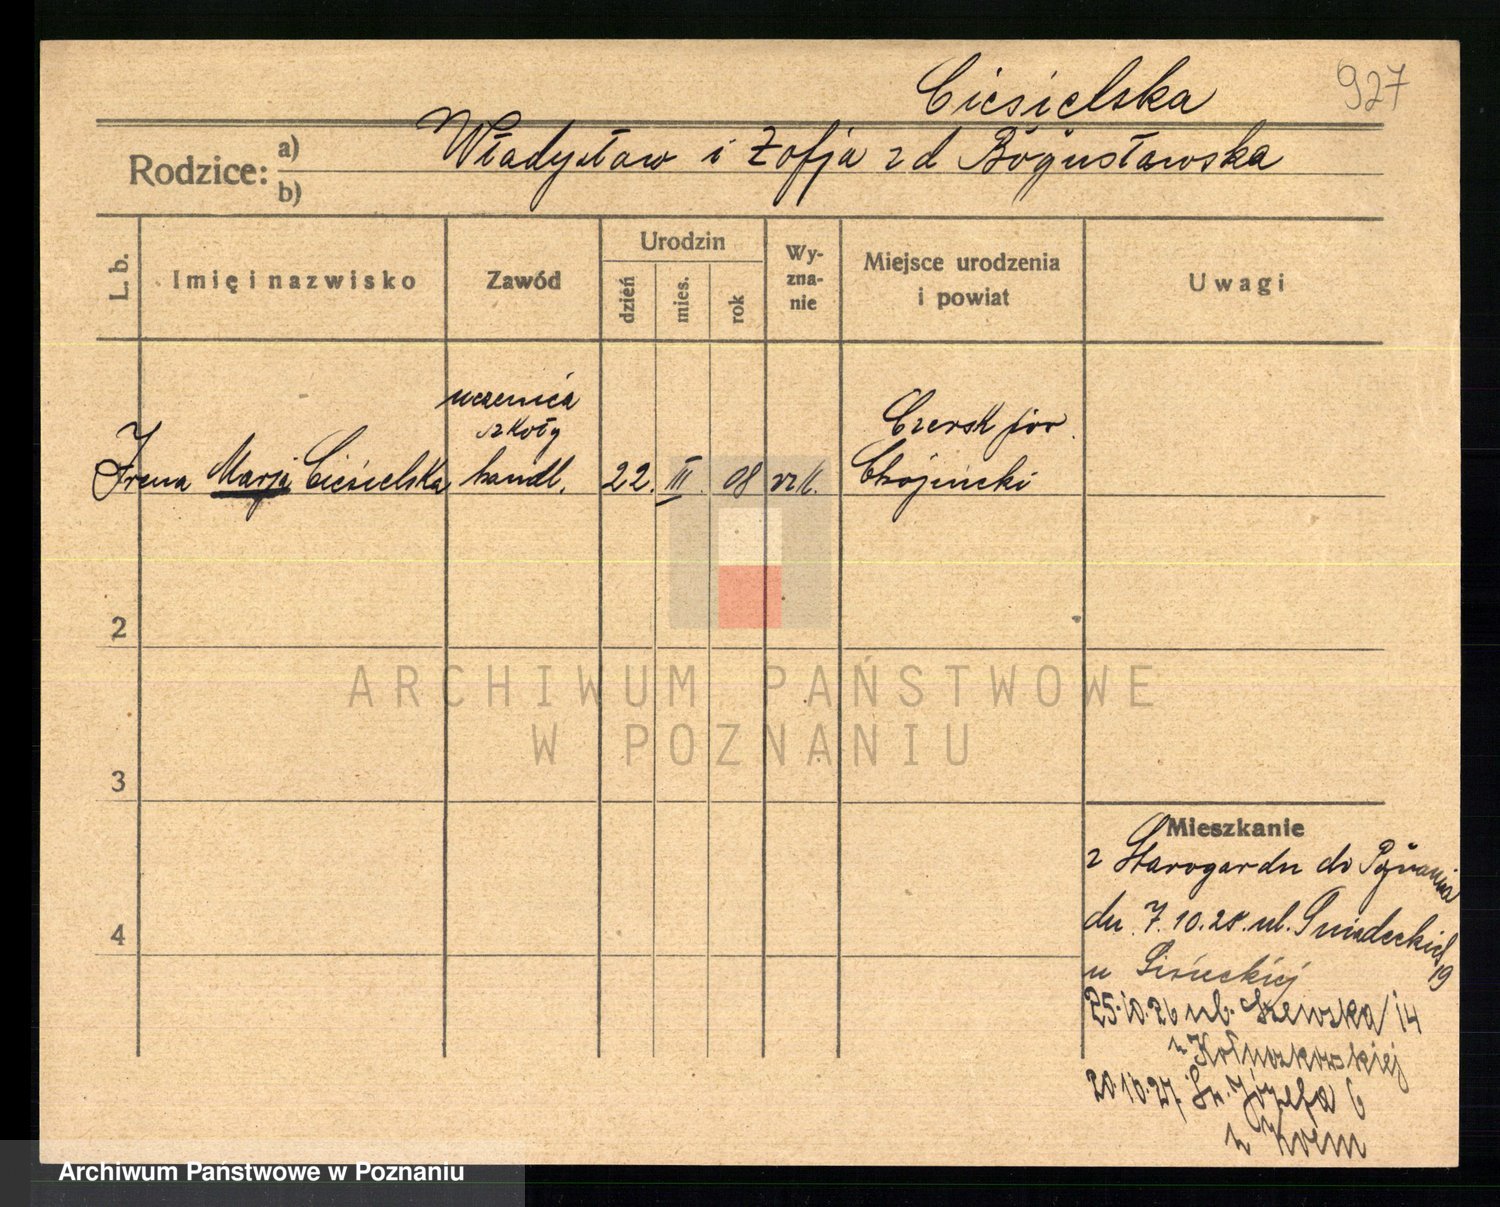 Ciesielska
927
Rodzice: a) Władysław i Zofja z d Bogusławska
b)
L. b.
Imię i nazwisko
Zawód
Urodzin
dzień
mies.
rok
Wy-
zna-
nie
Miejsce urodzenia
i powiat
Uwagi
uczenica
szkoły
handl.
Irena Marja Ciesielska
22. III. 08
rzk.
Czersk pow.
Chojnicki
2
3
4
ARCHIWUM PAŃSTWOWE
W POZNANIU
Mieszkanie
z Starogardu do Poznania
dn 7.10.25. ul. Śniadeckich 19
u
25.10.26 ul. Szewska 14
u
20.10.27. Św. Józefa 6
u
Archiwum Państwowe w Poznaniu